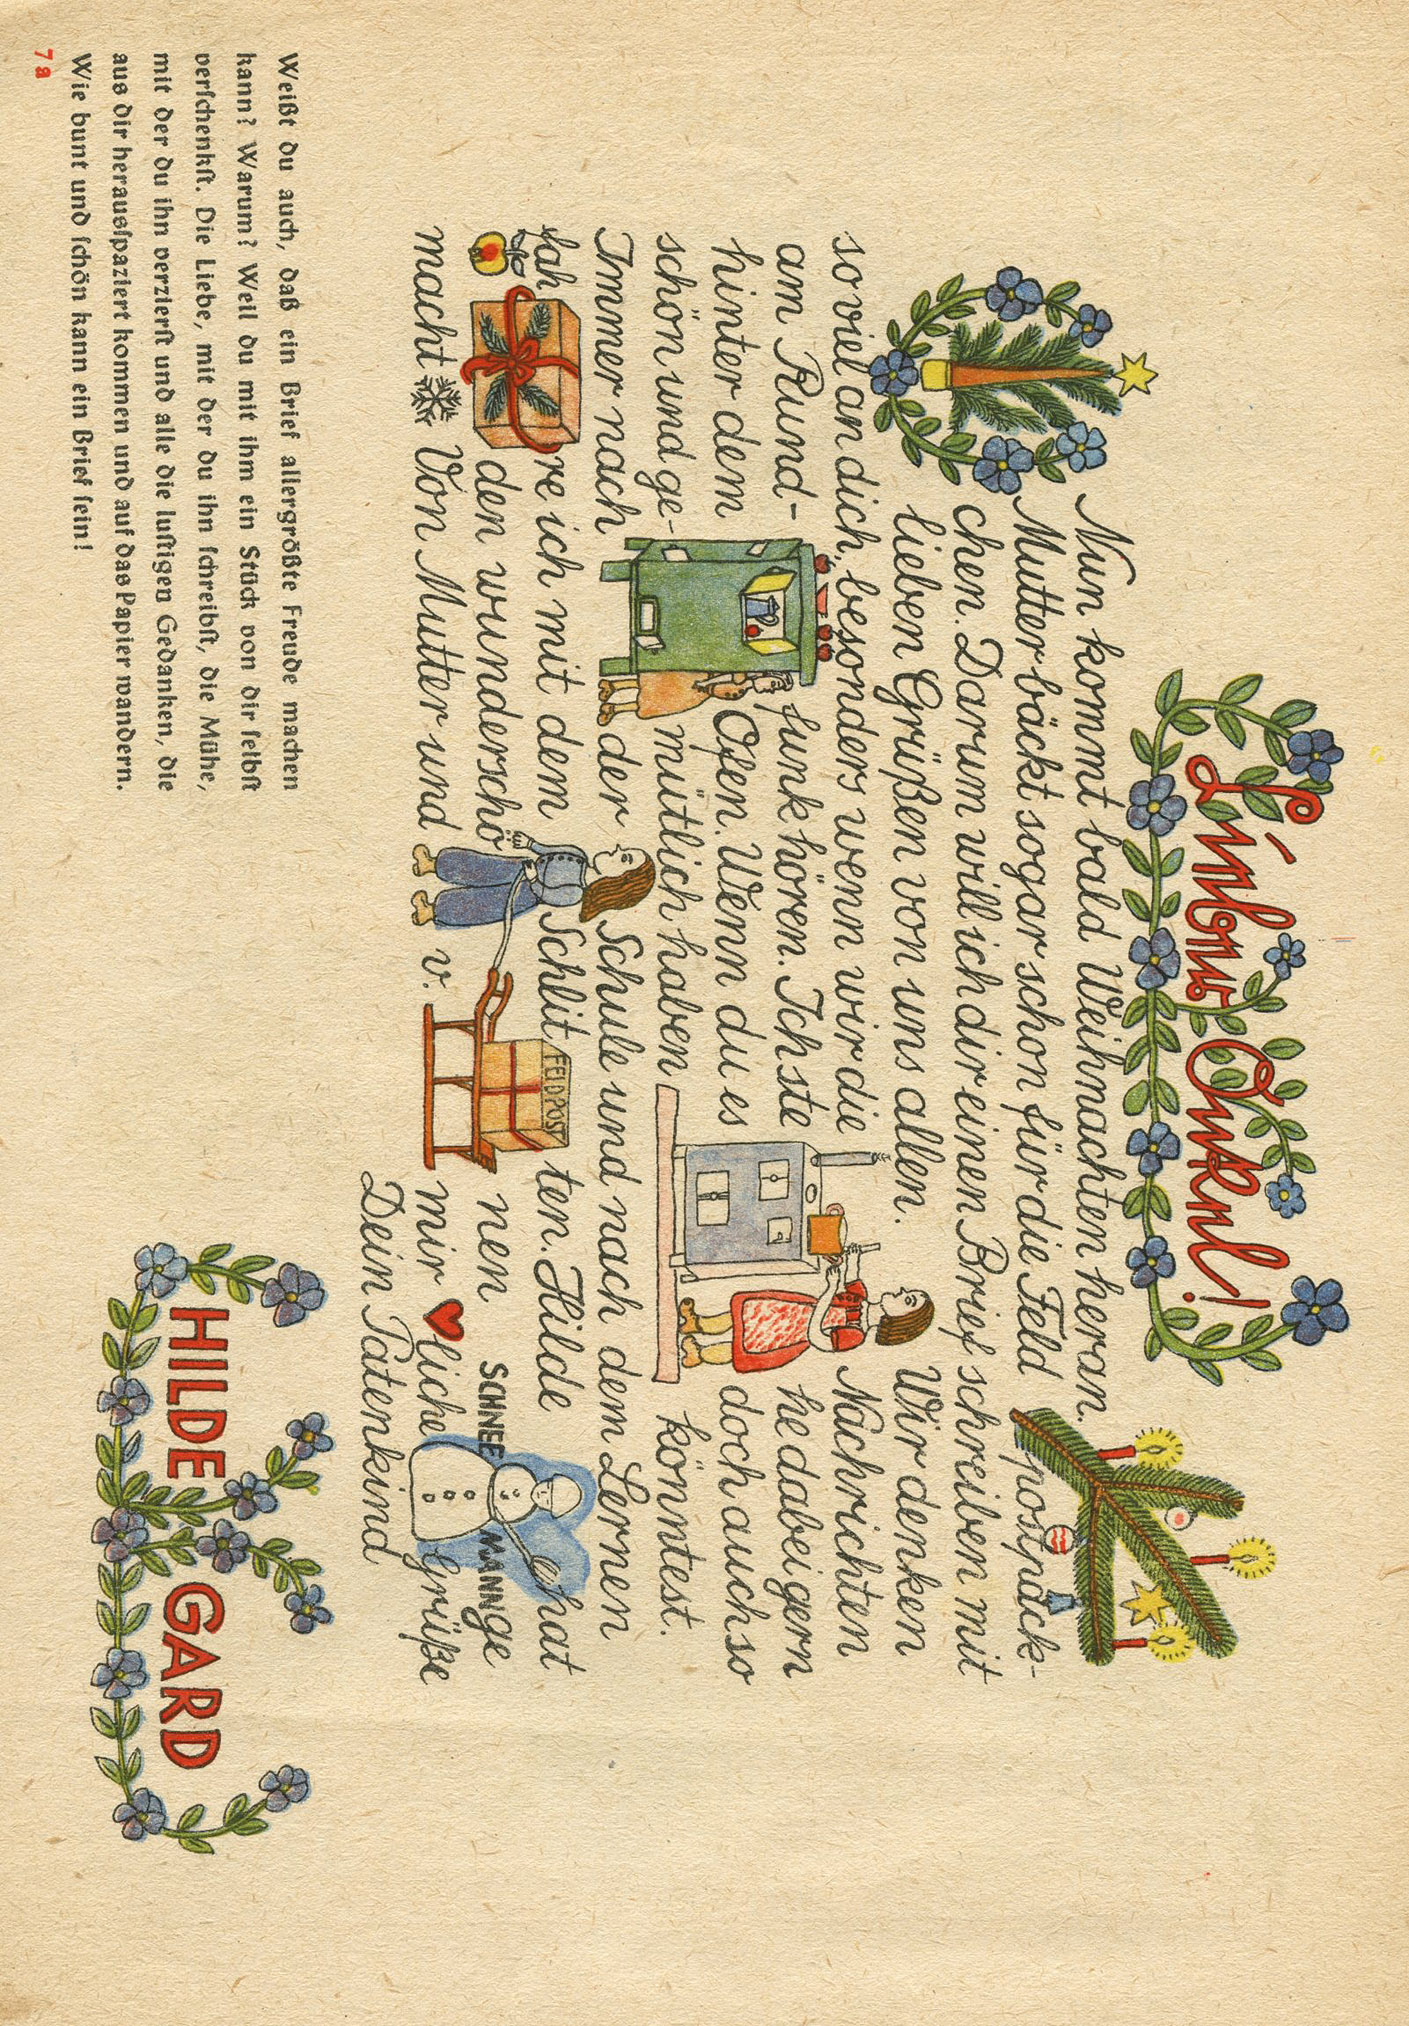 Lieber Onkel!
Nun kommt bald Weihnachten heran.
Mutter bäckt sogar schon für die Feld postpäck-
chen. Darum will ich dir einen Brief schreiben mit
lieben Grüßen von uns allen. Wir denken
soviel an dich, besonders wenn wir die Nachrichten
am Rund- funk hören. Ich ste he dabei gern
hinter dem Ofen. Wenn du es doch auch so
schön und ge- mütlich haben könntest.
Immer nach der Schule und nach dem Lernen
fah re ich mit dem Schlit ten. Hilde hat
den wunderschö nen SCHNEE MANN ge
macht Von Mutter und v. mir liche Grüße
Dein Patenkind
FELDPOST
HILDE GARD
Weißt du auch, daß ein Brief allergrößte Freude machen
kann? Warum? Weil du mit ihm ein Stück von dir selbst
verschenkst. Die Liebe, mit der du ihn schreibst, die Mühe,
mit der du ihn verzierst und alle die lustigen Gedanken, die
aus dir herausspaziert kommen und auf das Papier wandern.
Wie bunt und schön kann ein Brief sein!
7a